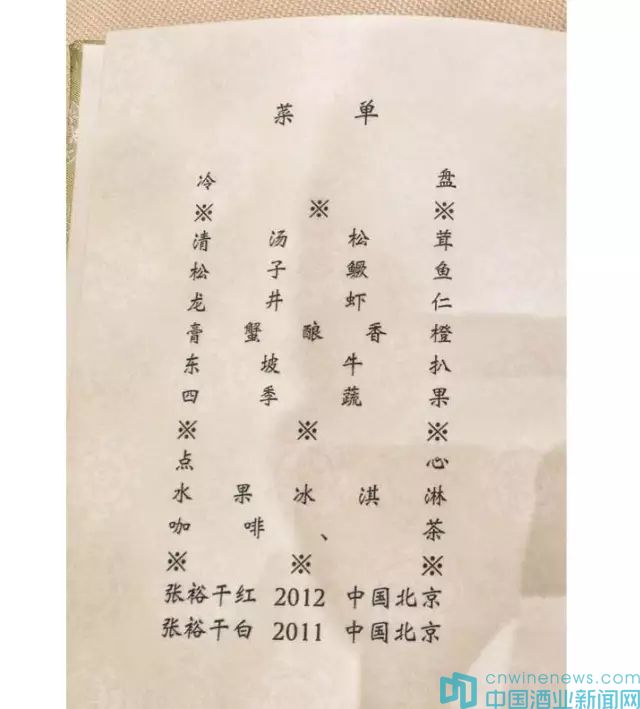 菜 单
冷 盘
※ ※ ※
清 汤 松 茸
松 子 鳜 鱼
龙 井 虾 仁
膏 蟹 酿 香 橙
东 坡 牛 扒
四 季 蔬 果
※ ※ ※
点 心
水 果 冰 淇 淋
咖 啡 、 茶
※ ※ ※
张裕干红 2012 中国北京
张裕干白 2011 中国北京
cnwinenews.com
中国酒业新闻网